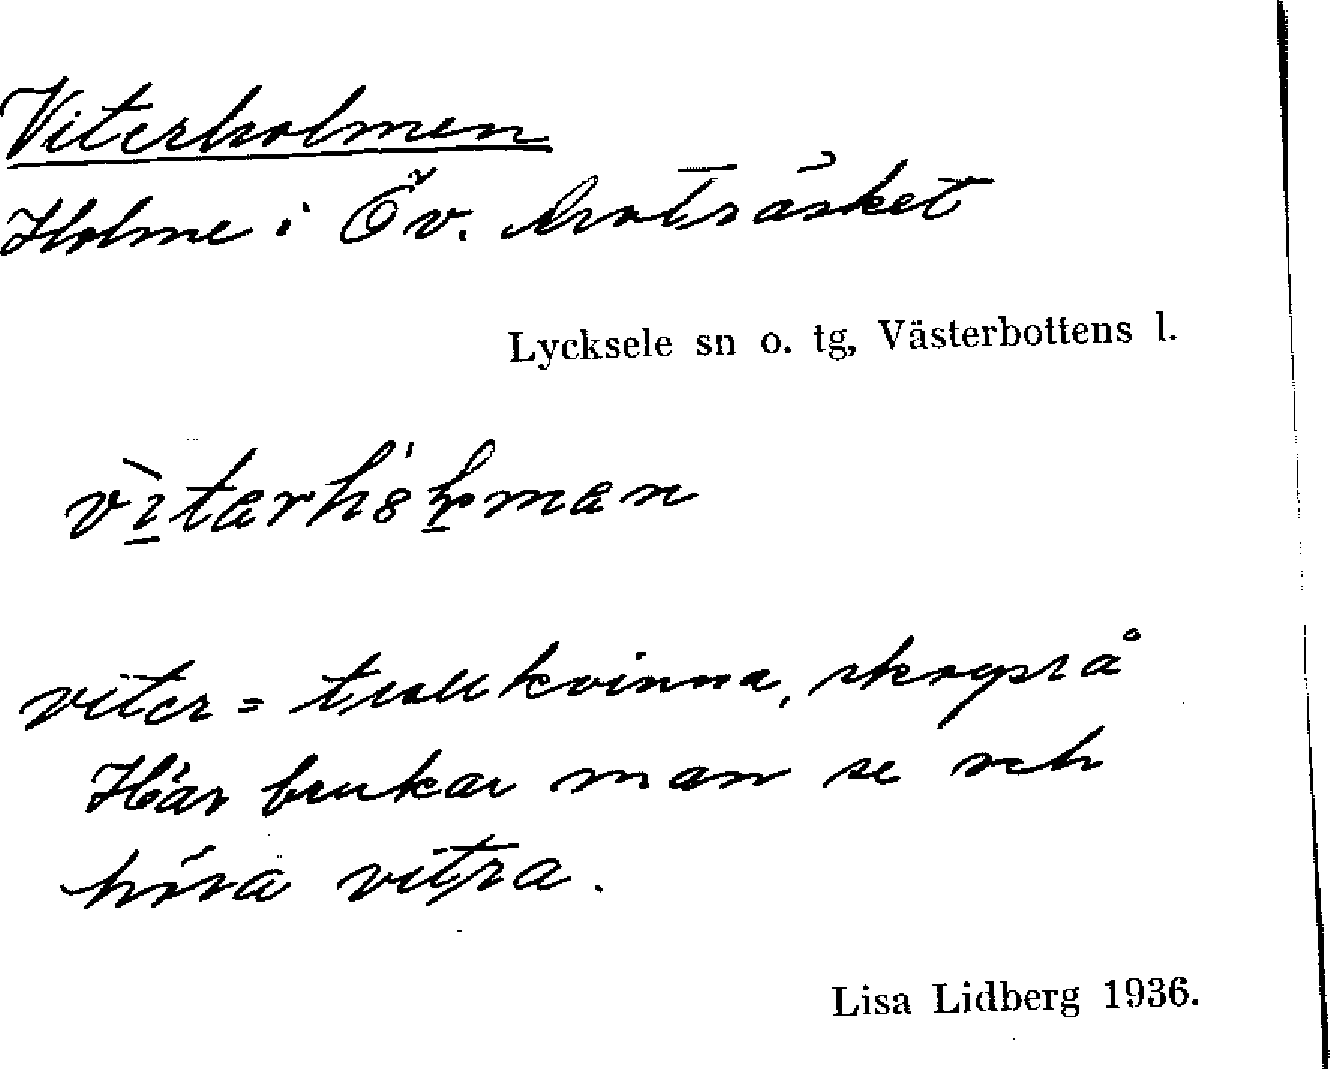 Viterholmen
Holme i Öv. träsket
Lycksele sn o. tg, Västerbottens l.
viter = trollkvinna, skogsrå
Här brukar man se och
höra vitra.
Lisa Lidberg 1936.